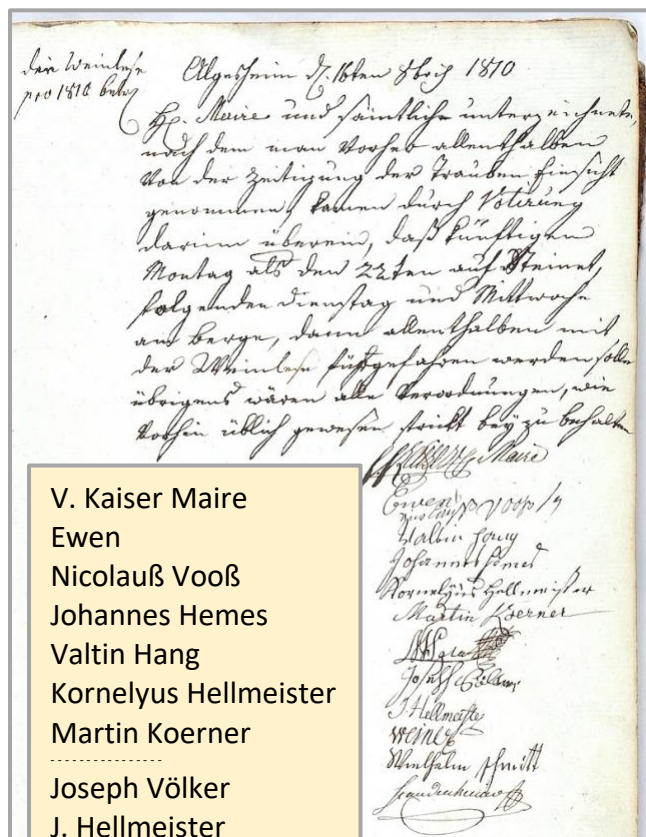 den Weinlese
pro 1810 betr
Algesheim d. 16ten 8brih 1810
H. Maire und sämtliche unterzeichnete,
nach dem man vorher allenthalben
von der Zeitigung der Trauben Einsicht
genommen, kamen durch Votirung
darinn überein, daß künftigen
Montag als den 22ten auf Steinet,
folgenden Dienstag und Mittwoche
am Berge, dann allenthalben mit
der Weinlese fürgefahren werden solle
übrigens wären alle Verordnungen, wie
vorhin üblich gewesen strickt bey zu behalten
Maire
Ewen
Nicolauß Vooß
Valtin Hang
Johannes Hemes
Kornelyus Hellmeister
Martin Koerner
Joseph Völker
J Hellmeister
Weiner
Wilhelm Schmitt
V. Kaiser Maire
Ewen
Nicolauß Vooß
Johannes Hemes
Valtin Hang
Kornelyus Hellmeister
Martin Koerner
Joseph Völker
J. Hellmeister